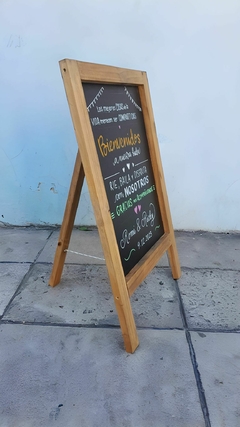 Las mejores COSAS de la
VIDA merecen ser COMPARTIDAS
Bienvenidos
a nuestra boda!
RÍE, BAILA y DISFRUTA
con NOSOTROS
GRACIAS por ACOMPAÑARNOS
&